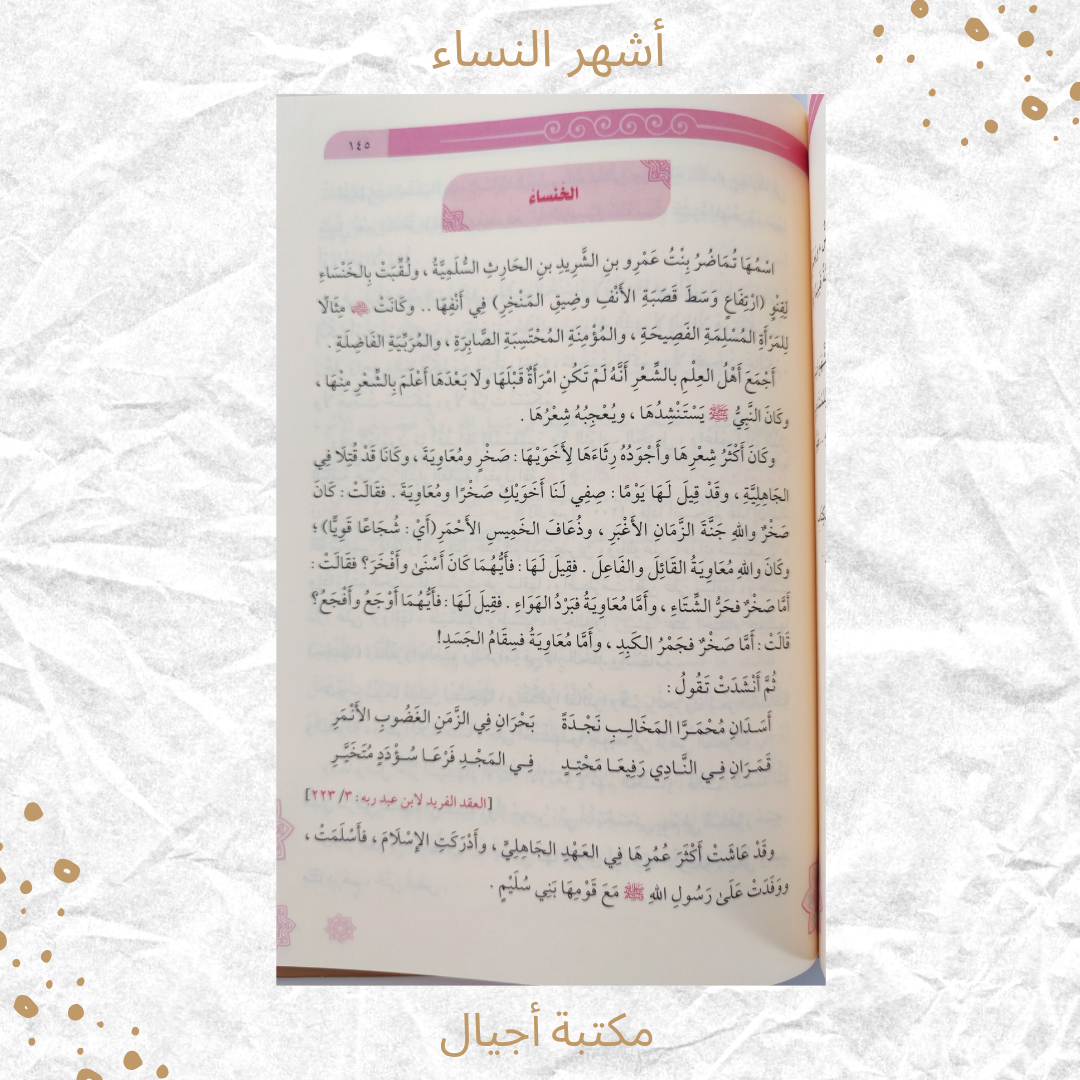 أشهر النساء
١٤٥
الخَنْساءُ
اسْمُهَا تُمَاضُرُ بِنْتُ عَمْرِو بنِ الشَّرِيدِ بنِ الحَارِثِ السُّلَمِيَّةُ ، ولُقِّبَتْ بِالخَنْسَاءِ
لِقِنْوٍ (ارْتِفَاعٍ وَسَطَ قَصَبَةِ الأَنْفِ وضِيقِ المَنْخِرِ) فِي أَنْفِهَا .. وكَانَتْ مِثَالًا
لِلمَرْأَةِ المُسْلِمَةِ الفَصِيحَةِ ، والمُؤْمِنَةِ المُحْتَسِبَةِ الصَّابِرَةِ ، والمُرَبِّيَةِ الفَاضِلَةِ .
أَجْمَعَ أَهْلُ العِلْمِ بالشِّعْرِ أَنَّهُ لَمْ تَكُنِ امْرَأَةٌ قَبْلَهَا ولَا بَعْدَهَا أَعْلَمَ بِالشِّعْرِ مِنْهَا ،
وكَانَ النَّبِيُّ ﷺ يَسْتَنْشِدُهَا ، ويُعْجِبُهُ شِعْرُهَا .
وكَانَ أَكْثَرُ شِعْرِهَا وأَجْوَدُهُ رِثَاءَهَا لِأَخَوَيْهَا : صَخْرٍ ومُعَاوِيَةَ ، وكَانَا قَدْ قُتِلَا فِي
الجَاهِلِيَّةِ ، وقَدْ قِيلَ لَهَا يَوْمًا : صِفِي لَنَا أَخَوَيْكِ صَخْرًا ومُعَاوِيَةَ . فقَالَتْ : كَانَ
صَخْرٌ واللهِ جَنَّةَ الزَّمَانِ الأَغْبَرِ ، وذُعَافَ الخَمِيسِ الأَحْمَرِ(أَيْ : شُجَاعًا قَوِيًّا) ؛
وكَانَ واللهِ مُعَاوِيَةُ القَائِلَ والفَاعِلَ . فقِيلَ لَهَا : فأَيُّهُمَا كَانَ أَسْنَىٰ وأَفْخَرَ؟ فقَالَتْ :
أَمَّا صَخْرٌ فحَرُّ الشِّتَاءِ ، وأَمَّا مُعَاوِيَةُ فبَرْدُ الهَوَاءِ . فقِيلَ لَهَا : فأَيُّهُمَا أَوْجَعُ وأَفْجَعُ؟
قَالَتْ : أَمَّا صَخْرٌ فجَمْرُ الكَبِدِ ، وأَمَّا مُعَاوِيَةُ فسِقَامُ الجَسَدِ!
ثُمَّ أَنْشَدَتْ تَقُولُ :
أَسَـدَانِ مُحْمَـرَّا المَخَالِـبِ نَجْـدَةً بَحْرَانِ فِي الزَّمَنِ الغَضُوبِ الأَنْمَرِ
قَمَـرَانِ فِـي النَّـادِي رَفِيعَـا مَحْتِـدٍ فِـي المَجْـدِ فَرْعَـا سُـؤْدَدٍ مُتَخَيَّـرِ
[العقد الفريد لابن عبد ربه : ٣/ ٢٢٣]
وقَدْ عَاشَتْ أَكْثَرَ عُمُرِهَا فِي العَهْدِ الجَاهِلِيِّ ، وأَدْرَكَتِ الإِسْلَامَ ، فأَسْلَمَتْ ،
ووَفَدَتْ عَلَىٰ رَسُولِ اللهِ ﷺ مَعَ قَوْمِهَا بَنِي سُلَيْمٍ .
مكتبة أجيال